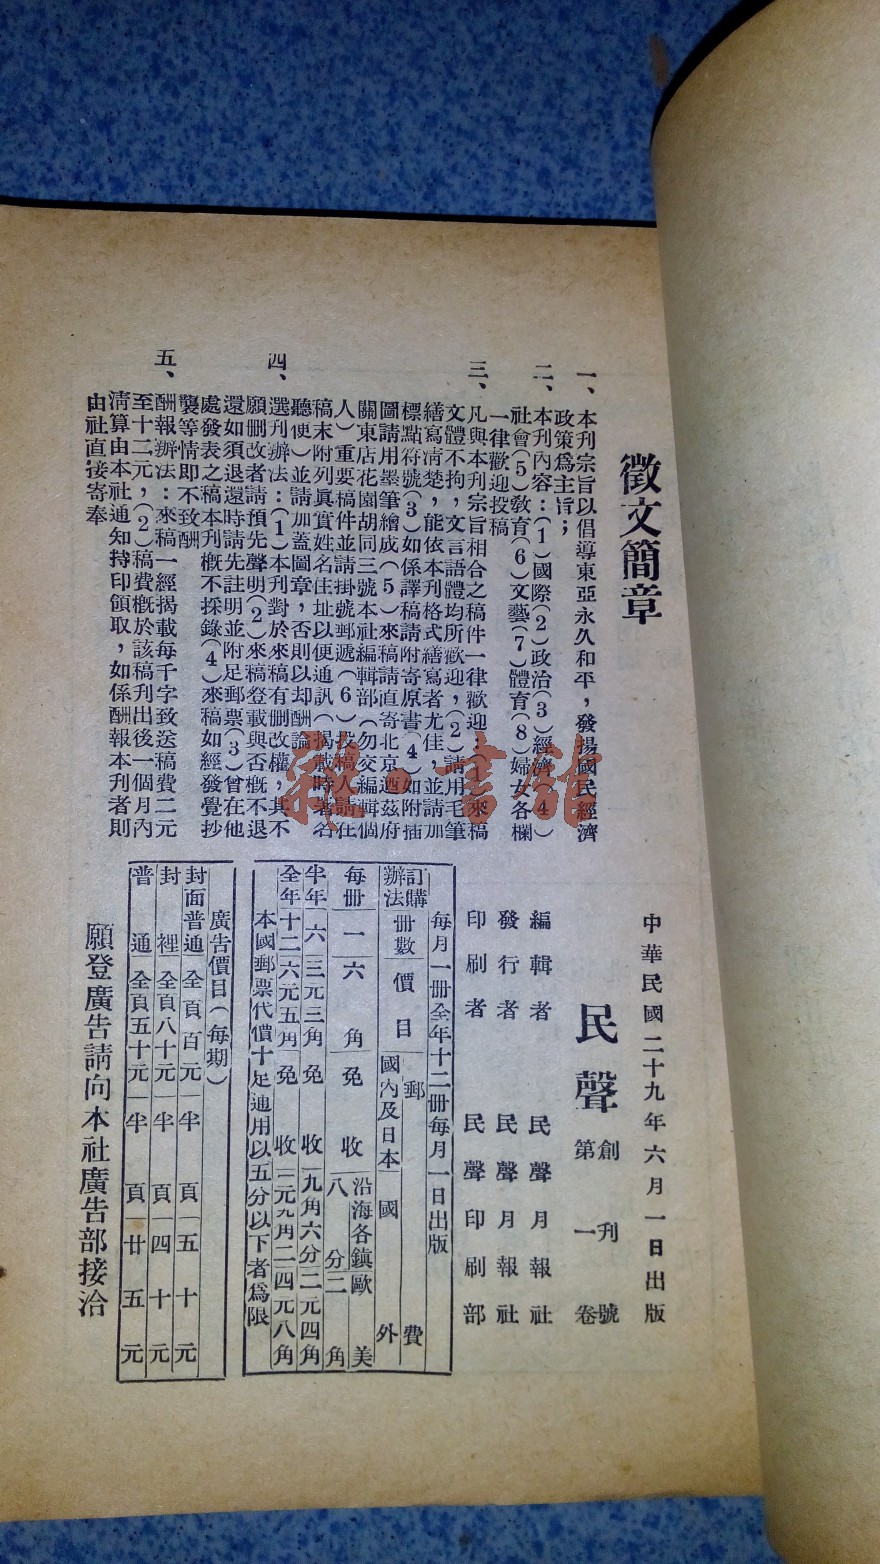 徵文簡章
一、本刊宗旨以倡導東亞永久和平，發揚國民經濟
政策爲主旨；
二、本刊內容：（1）國際（2）政治（3）經濟（4）
社會（5）敎育（6）文藝（7）體育（8）婦女各欄
一律歡迎投稿
三、凡與本刊宗旨相合之稿件一律歡迎：（1）來稿
文體不拘，文言語體均所歡迎，（2）請用毛筆
繕寫淸楚，能依本刊格式繕寫者尤佳，並請加
標點符號（3）如係譯稿請附寄原書（4）如附插
圖請用墨筆繪成（5）來稿請直寄北京迺茲府
關東店花園胡同三號本社編輯部（勿交編輯個
人）重要稿件並請掛號郵遞（6）投稿人請在
稿末附列眞實姓名住址以便通訊（揭載時署名
聽便）並請加蓋圖章，否則以却酬論
四、選刊辦法：（1）本刊對於來稿有删改權，其不
願删改者請預先聲明（2）來稿登載與否槪不退
還如須退還時請先註明並附足郵票（3）曾在他
處發表之稿本刊槪不採錄（4）來稿如經發覺抄
襲等情即不致酬
五、酬報辦法：來稿一經揭載每千字致送稿費二元
至十二元，（2）稿費槪於該稿刊出後一個月內
淸算由本社通知持印領取，如係酬報本刊者則
由社直接寄奉
中華民國二十九年六月一日出版
民聲 創刊號 第一卷
編輯者 民聲月報社
發行者 民聲月報社
印刷者 民聲印刷部
每月一册全年十二册每月一日出版
訂購辦法 册數 價目 郵費
國內及日本 國外
沿海各鎮 歐美
每册 一 六角 免收 八分 二角
半年 六 三元三角 免收 九角六分 二元四角
全年 十二 六元五角 免收 元九角二 四元八角
本國郵票代價十足通用以五分以下者爲限
廣吿價目（每期）
封面普通 全頁百元 半頁五十元
封裡 全頁八十元 半頁四十元
普通 全頁五十元 半頁廿五元
願登廣吿請向本社廣吿部接洽
雜·書館